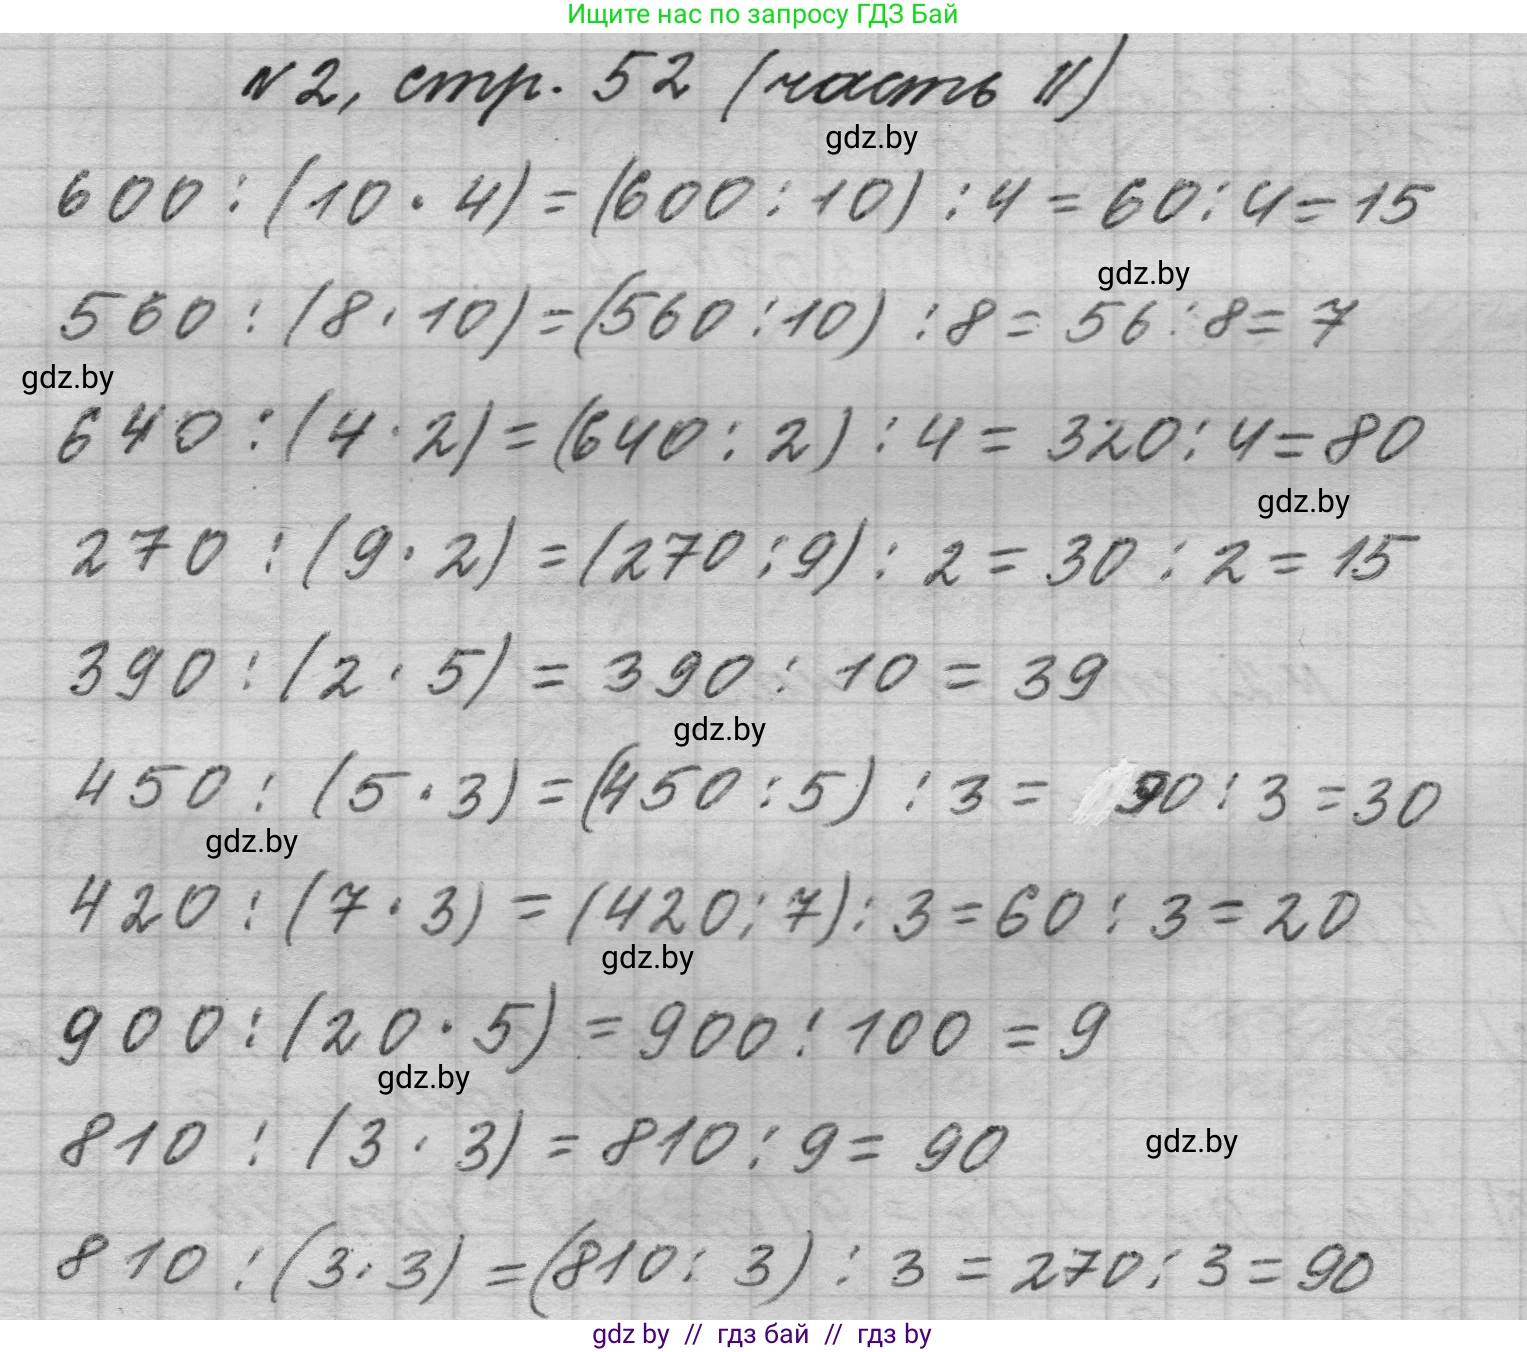 Ищите нас по запросу ГДЗ Бай
№2, стр. 52 (часть II)
gdz.by
600 : (10 · 4) = (600 : 10) : 4 = 60 : 4 = 15
gdz.by
560 : (8 · 10) = (560 : 10) : 8 = 56 : 8 = 7
gdz.by
640 : (4 · 2) = (640 : 2) : 4 = 320 : 4 = 80
gdz.by
270 : (9 · 2) = (270 : 9) : 2 = 30 : 2 = 15
390 : (2 · 5) = 390 : 10 = 39
gdz.by
450 : (5 · 3) = (450 : 5) : 3 = 90 : 3 = 30
gdz.by
420 : (7 · 3) = (420 : 7) : 3 = 60 : 3 = 20
gdz.by
900 : (20 · 5) = 900 : 100 = 9
gdz.by
810 : (3 · 3) = 810 : 9 = 90
gdz.by
810 : (3 · 3) = (810 : 3) : 3 = 270 : 3 = 90
gdz by // гдз бай // гдз by